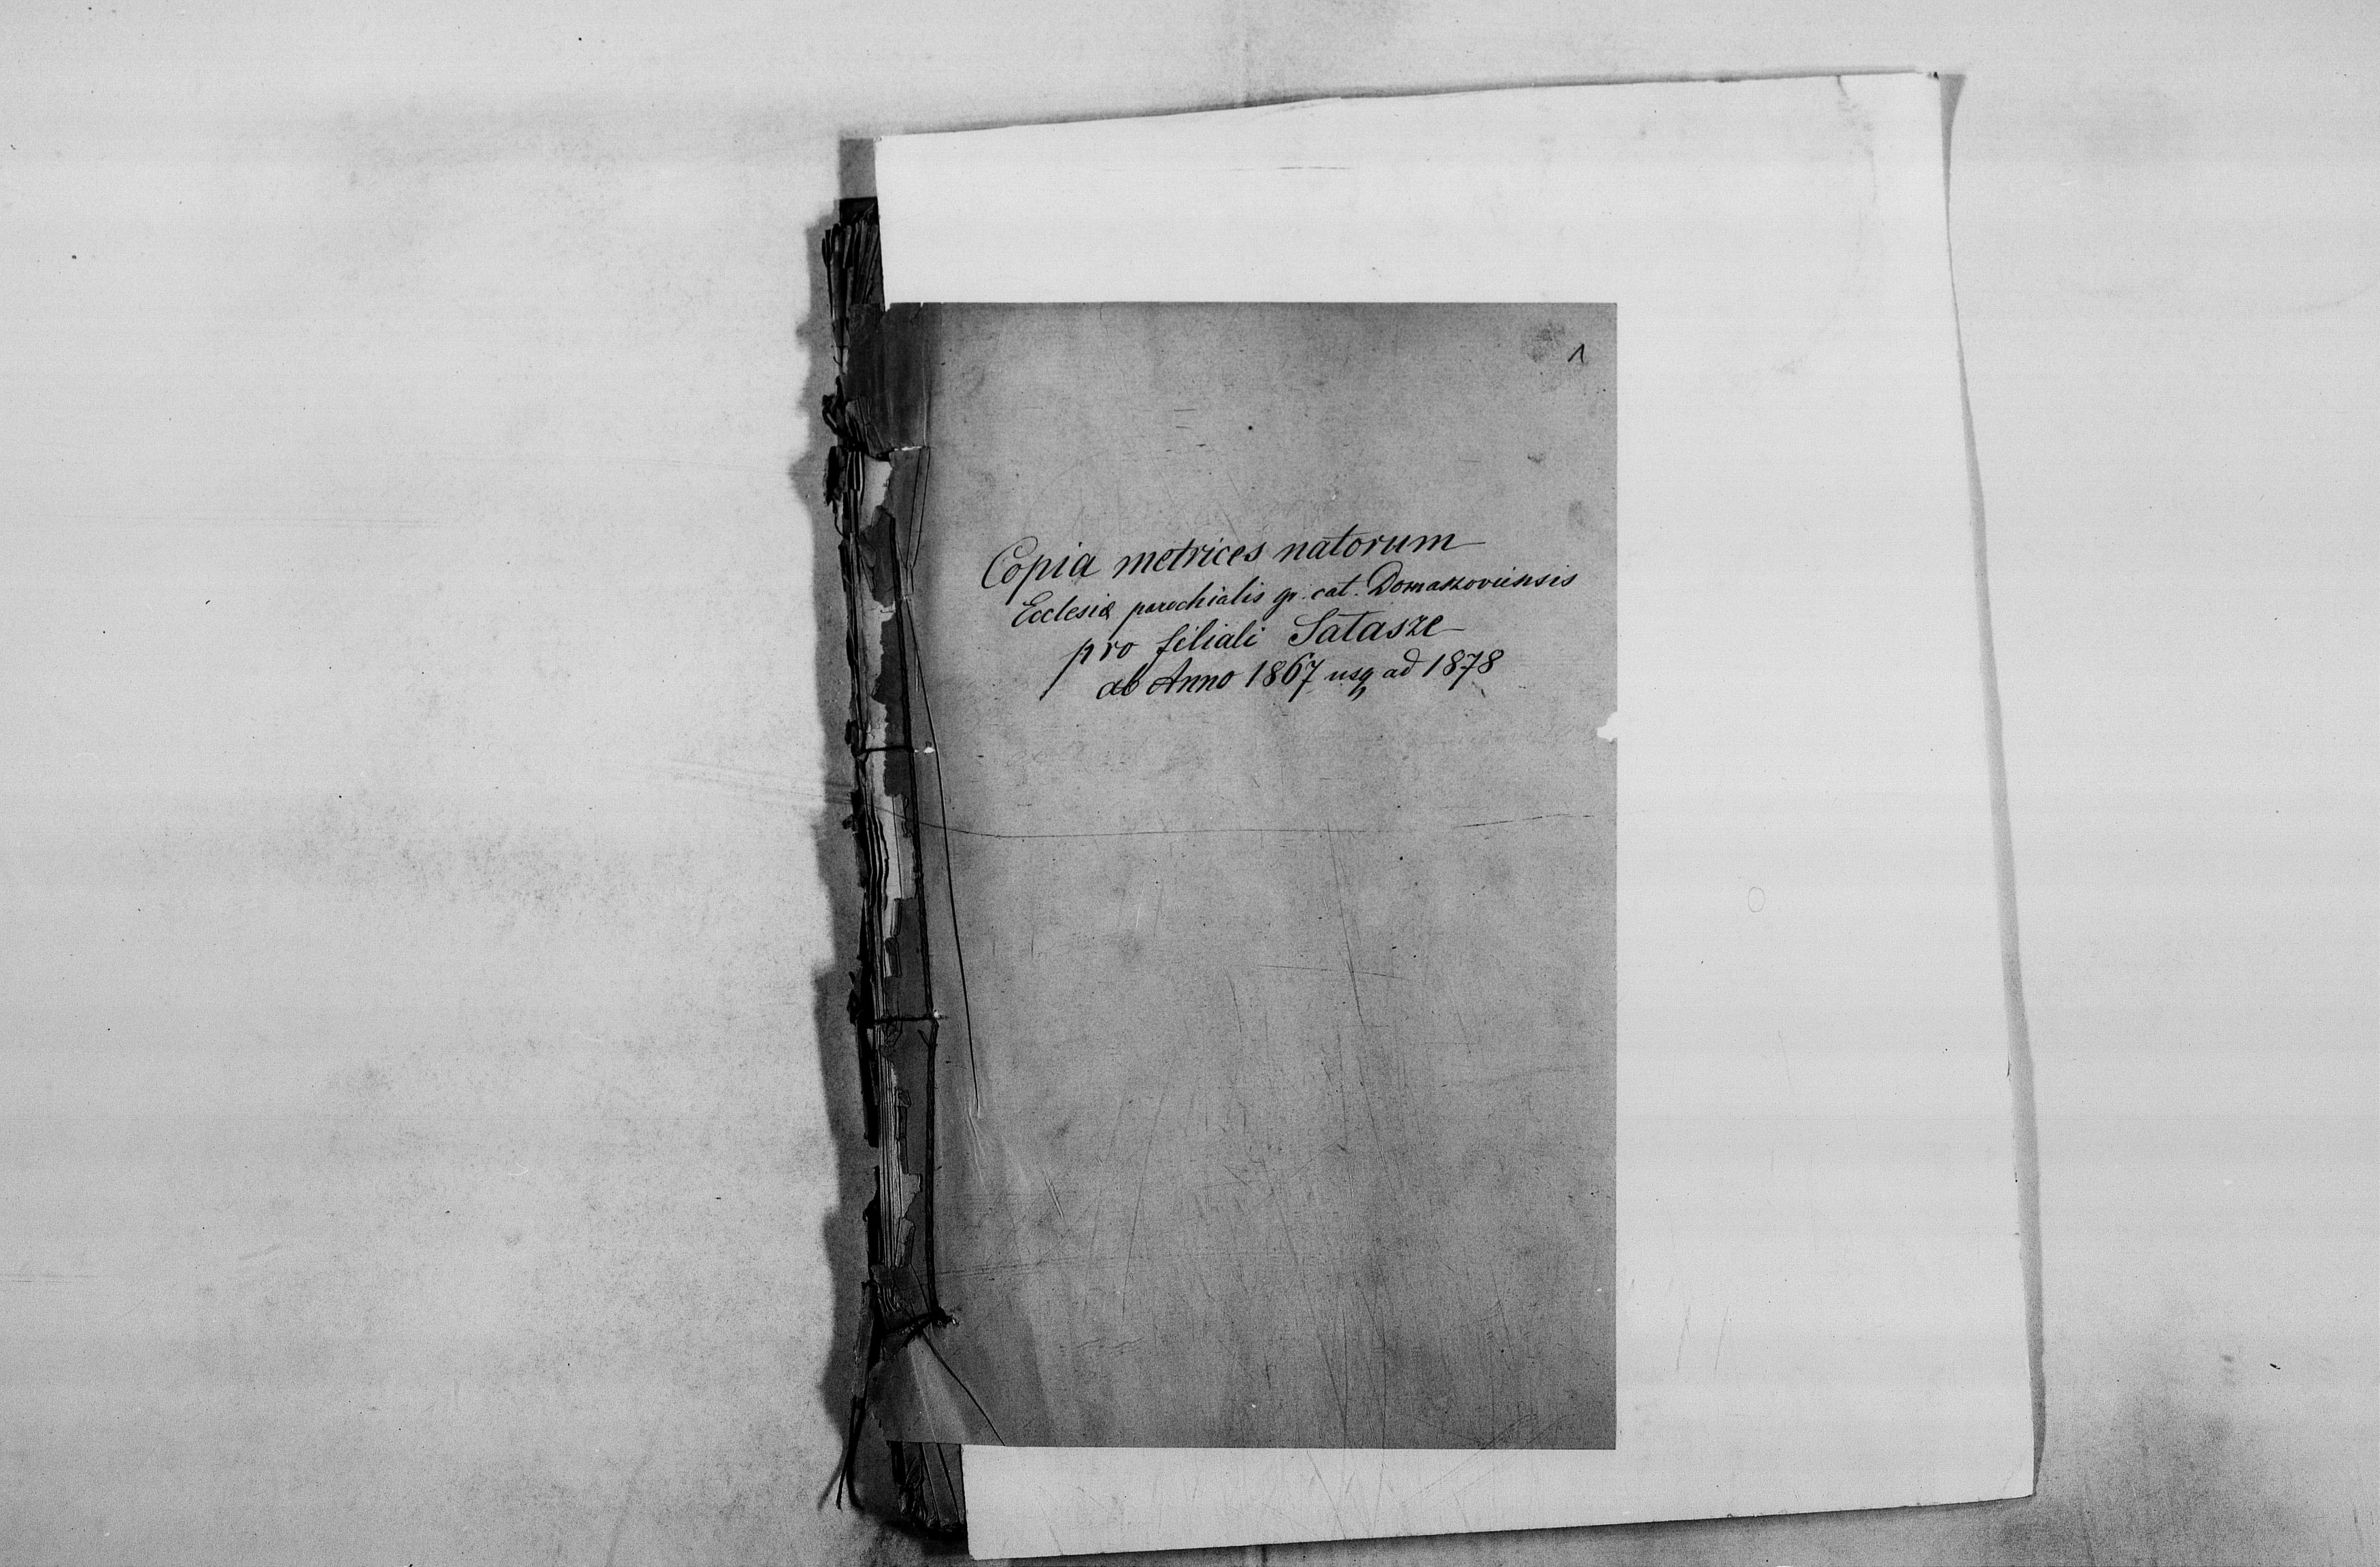 1
Copia metrices natorum
Ecclesiæ parochialis gr. cat. Domaszoviensis
pro filiali Satasze
ab Anno 1867 usq ad 1878